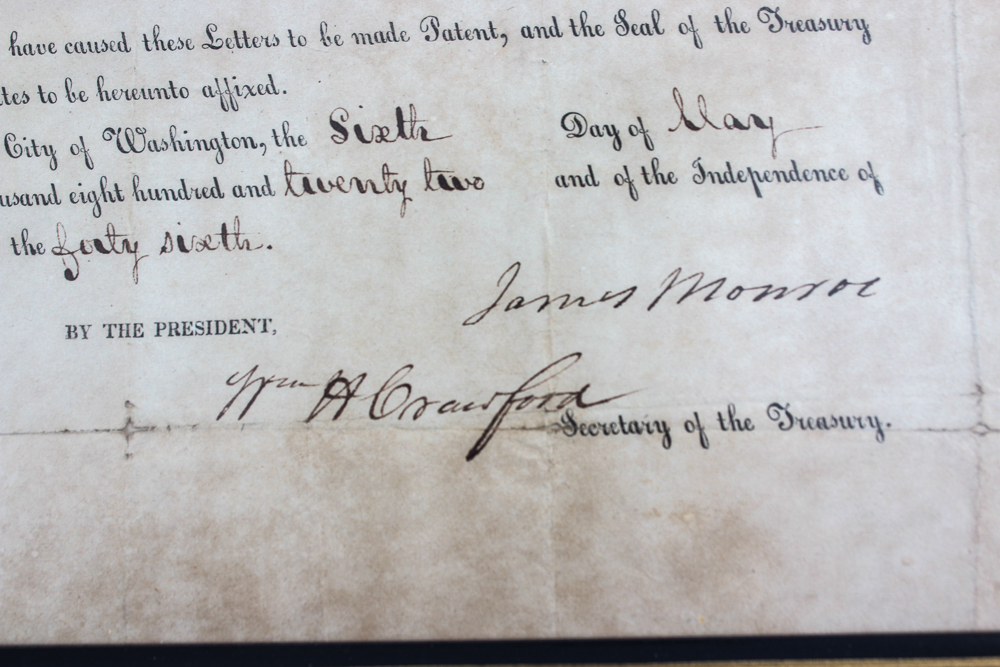 have caused these Letters to be made Patent, and the Seal of the Treasury
tes to be hereunto affixed.
City of Washington, the Sixth Day of May
usand eight hundred and twenty two and of the Independence of
the forty sixth.
James Monroe
BY THE PRESIDENT,
Wm H Crawford
Secretary of the Treasury.